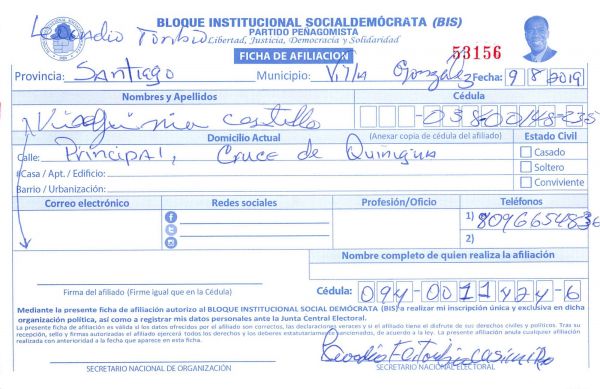 BLOQUE INSTITUCIONAL SOCIALDEMÓCRATA (BIS)
PARTIDO PEÑAGOMISTA
Libertad, Justicia, Democracia y Solidaridad
FICHA DE AFILIACIÓN
53156
Provincia: Santiago Municipio: Villa González Fecha: 9/8/2019
Nombres y Apellidos Cédula
castillo
Domicilio Actual (Anexar copia de cédula del afiliado) Estado Civil
Calle: Principal, Cruce de Quinigua Casado
#Casa / Apt. / Edificio: Soltero
Barrio / Urbanización: Conviviente
Correo electrónico Redes sociales Profesión/Oficio Teléfonos
1) 8096654836
2)
Nombre completo de quien realiza la afiliación
Firma del afiliado (Firme igual que en la Cédula) Cédula: 094-0011424-6
Mediante la presente ficha de afiliación autorizo al BLOQUE INSTITUCIONAL SOCIAL DEMÓCRATA (BIS) a realizar mi inscripción única y exclusiva en dicha
organización política, así como a registrar mis datos personales ante la Junta Central Electoral.
La presente ficha de afiliación es válida si los datos ofrecidos por el afiliado son correctos, las declaraciones veraces y si el afiliado tiene disfrute de sus derechos civiles y políticos. Tras su
recepción, sello y firmas autorizadas el afiliado ejercerá todos los derechos y los deberes estatutariamente sancionados, de acuerdo a la ley. La presente afiliación anula cualquier afiliación
realizada con anterioridad a la fecha que aparece en esta ficha.
SECRETARIO NACIONAL DE ORGANIZACIÓN SECRETARIO NACIONAL ELECTORAL